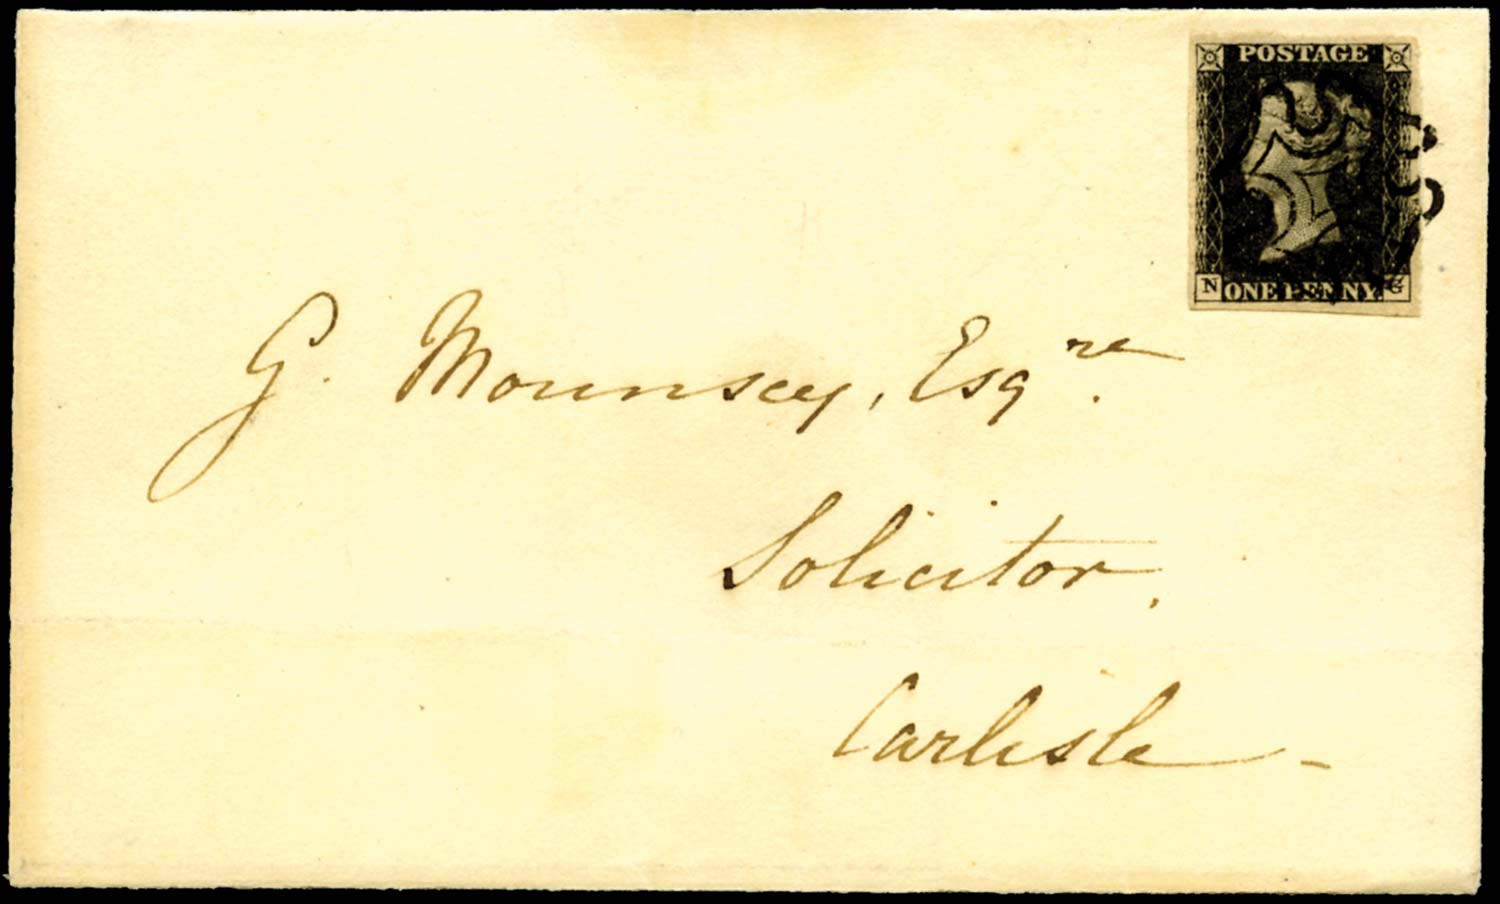 POSTAGE
N ONE PENNY. G
G. Mounsey, Esqre.
Solicitor,
Carlisle -